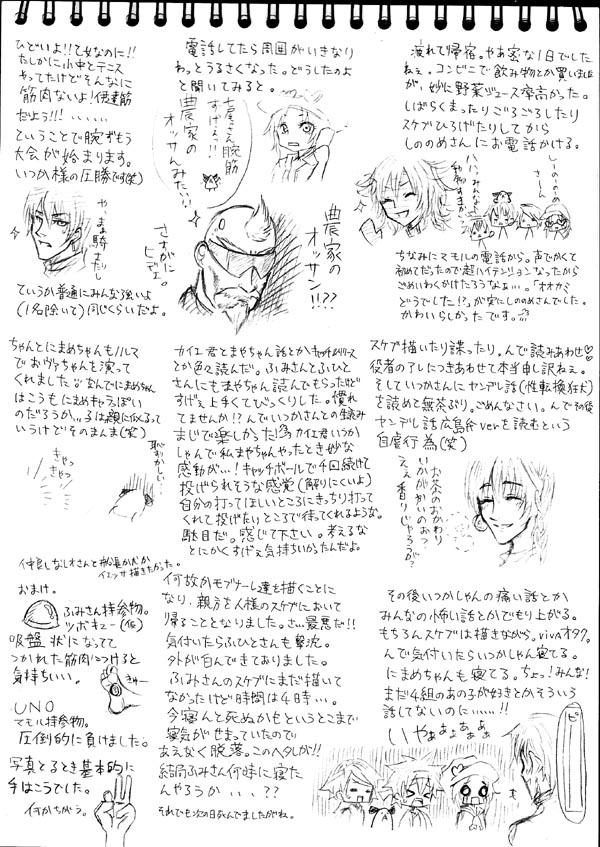 疲れて帰宿。やあ密な1日でした
ねぇ。コンビニで飲み物とか買いましたが
が、妙に野菜ジュース率高かった。
しばらくまったりごろごろしたり
スケブひろげたりしてから
しののめさんにお電話かける。
しーのーのーめ
さーん
ハハハみんな
ちなみにマモルの電話から。声でかくて
初めてだったので超ハイテンションなったから
ごめいわくかけたろうなぁ…。「オオカミ
どうでした!?」が実にしののめさんでした。
かわいらしかったです。
電話してたら周囲がいきなり
わっとうるさくなった。どうしたのよ
と聞いてみると。
腕筋
すげえっ!!
農家の
オッサンみたい!!
農家の
オッサン!!??
さすがに
ヒデェ。
ひどいよ!!乙女なのに!!
たしかに小中とテニス
やってたけどそんなに
筋肉ないよ!伊達筋
だよう!!・・・・・・
ということで腕ずもう
大会が始まります。
いつか様の圧勝です(笑)
ていうか普通にみんな強いよ
(1名除いて)同じくらいだよ。
スケブ描いたり喋ったり。んで読みあわせ♡
役者のアレにつきあわせて本当申し訳ねぇ。
そしていつかさんにヤンデレ話(性転換狂犬)
を読めと無茶ぶり。ごめんなさい。んでその後
ヤンデレ話広島弁verを読むという
自虐行為(笑)
お茶のおかわり
いかがかいのお?
ええ香りじゃろぶ?
カイエ君とまやちゃん話とかキャッチボリース
とか色々読んだ。ふみさんとふひと
さんにもまやちゃん読んでもらったけど
すげぇ上手くてびっくりした。慣れ
てませんか!?んでいつかさんとの絡み
まじで楽しかった!カイエ君いつか
しゃんで私まやちゃんやったとき妙な
感動が…!キャッチボールで千回続けて
投げられそうな感覚(解りにくいよ)
自分の打ってほしいところにきっちり打って
くれて投げたいところで待っててくれるような。
駄目だ。感じて下さい。考えるな
とにかくすげぇ気持ちいかったんだよ。
ちゃんとにまめちゃんもノルマ
でおヴァちゃんを演って
くれました なんでにまめちゃん
はこうもにまめキャラっぽい
のだろうか…るは親に似るって
いうけどそのまんま(笑)
恥ずかしい…
きゃっ
きゃっ
その後いつかしゃんの痛い話とか
みんなの怖い話とかでもり上がる。
もちろんスケブは描きながら。vivaオタク。
んで気付いたらいつかしゃん寝てる。
にまめちゃんも寝てる。ちょっ!みんな!
まだ4組のあの子が好きとかそういう
話してないのに……!!
いやぁぁぁぁぁ
何故かモブナーレ達を描くことに
なり、親方を人様のスケブにおいて
帰ることとなりました。さ…最悪だ!!
気付いたらふひとさんも撃沈。
外が白んできておりました。
ふみさんのスケブにまだ描いて
なかったけど時間は4時…。
今寝んと死ぬかもというとこまで
寝気がせまっていたので
あえなく脱落。このヘタレが!!
結局ふみさん何時に寝た
んやろうか・・・??
それでも次の日死んでましたがね。
おまけ。
ふみさん持参物。
ツボキュー(仮)
吸盤状になってて
つかれた筋肉につけると
気持ちいい。
きゅー
UNO
マモル持参物。
圧倒的に負けました。
写真とるとき基本的に
手はこうでした。
何かちがう。